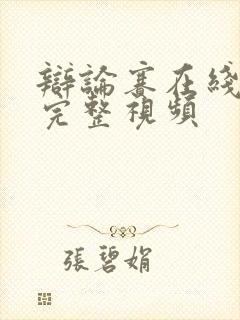 辯論賽在綫
完整視頻
張碧娟